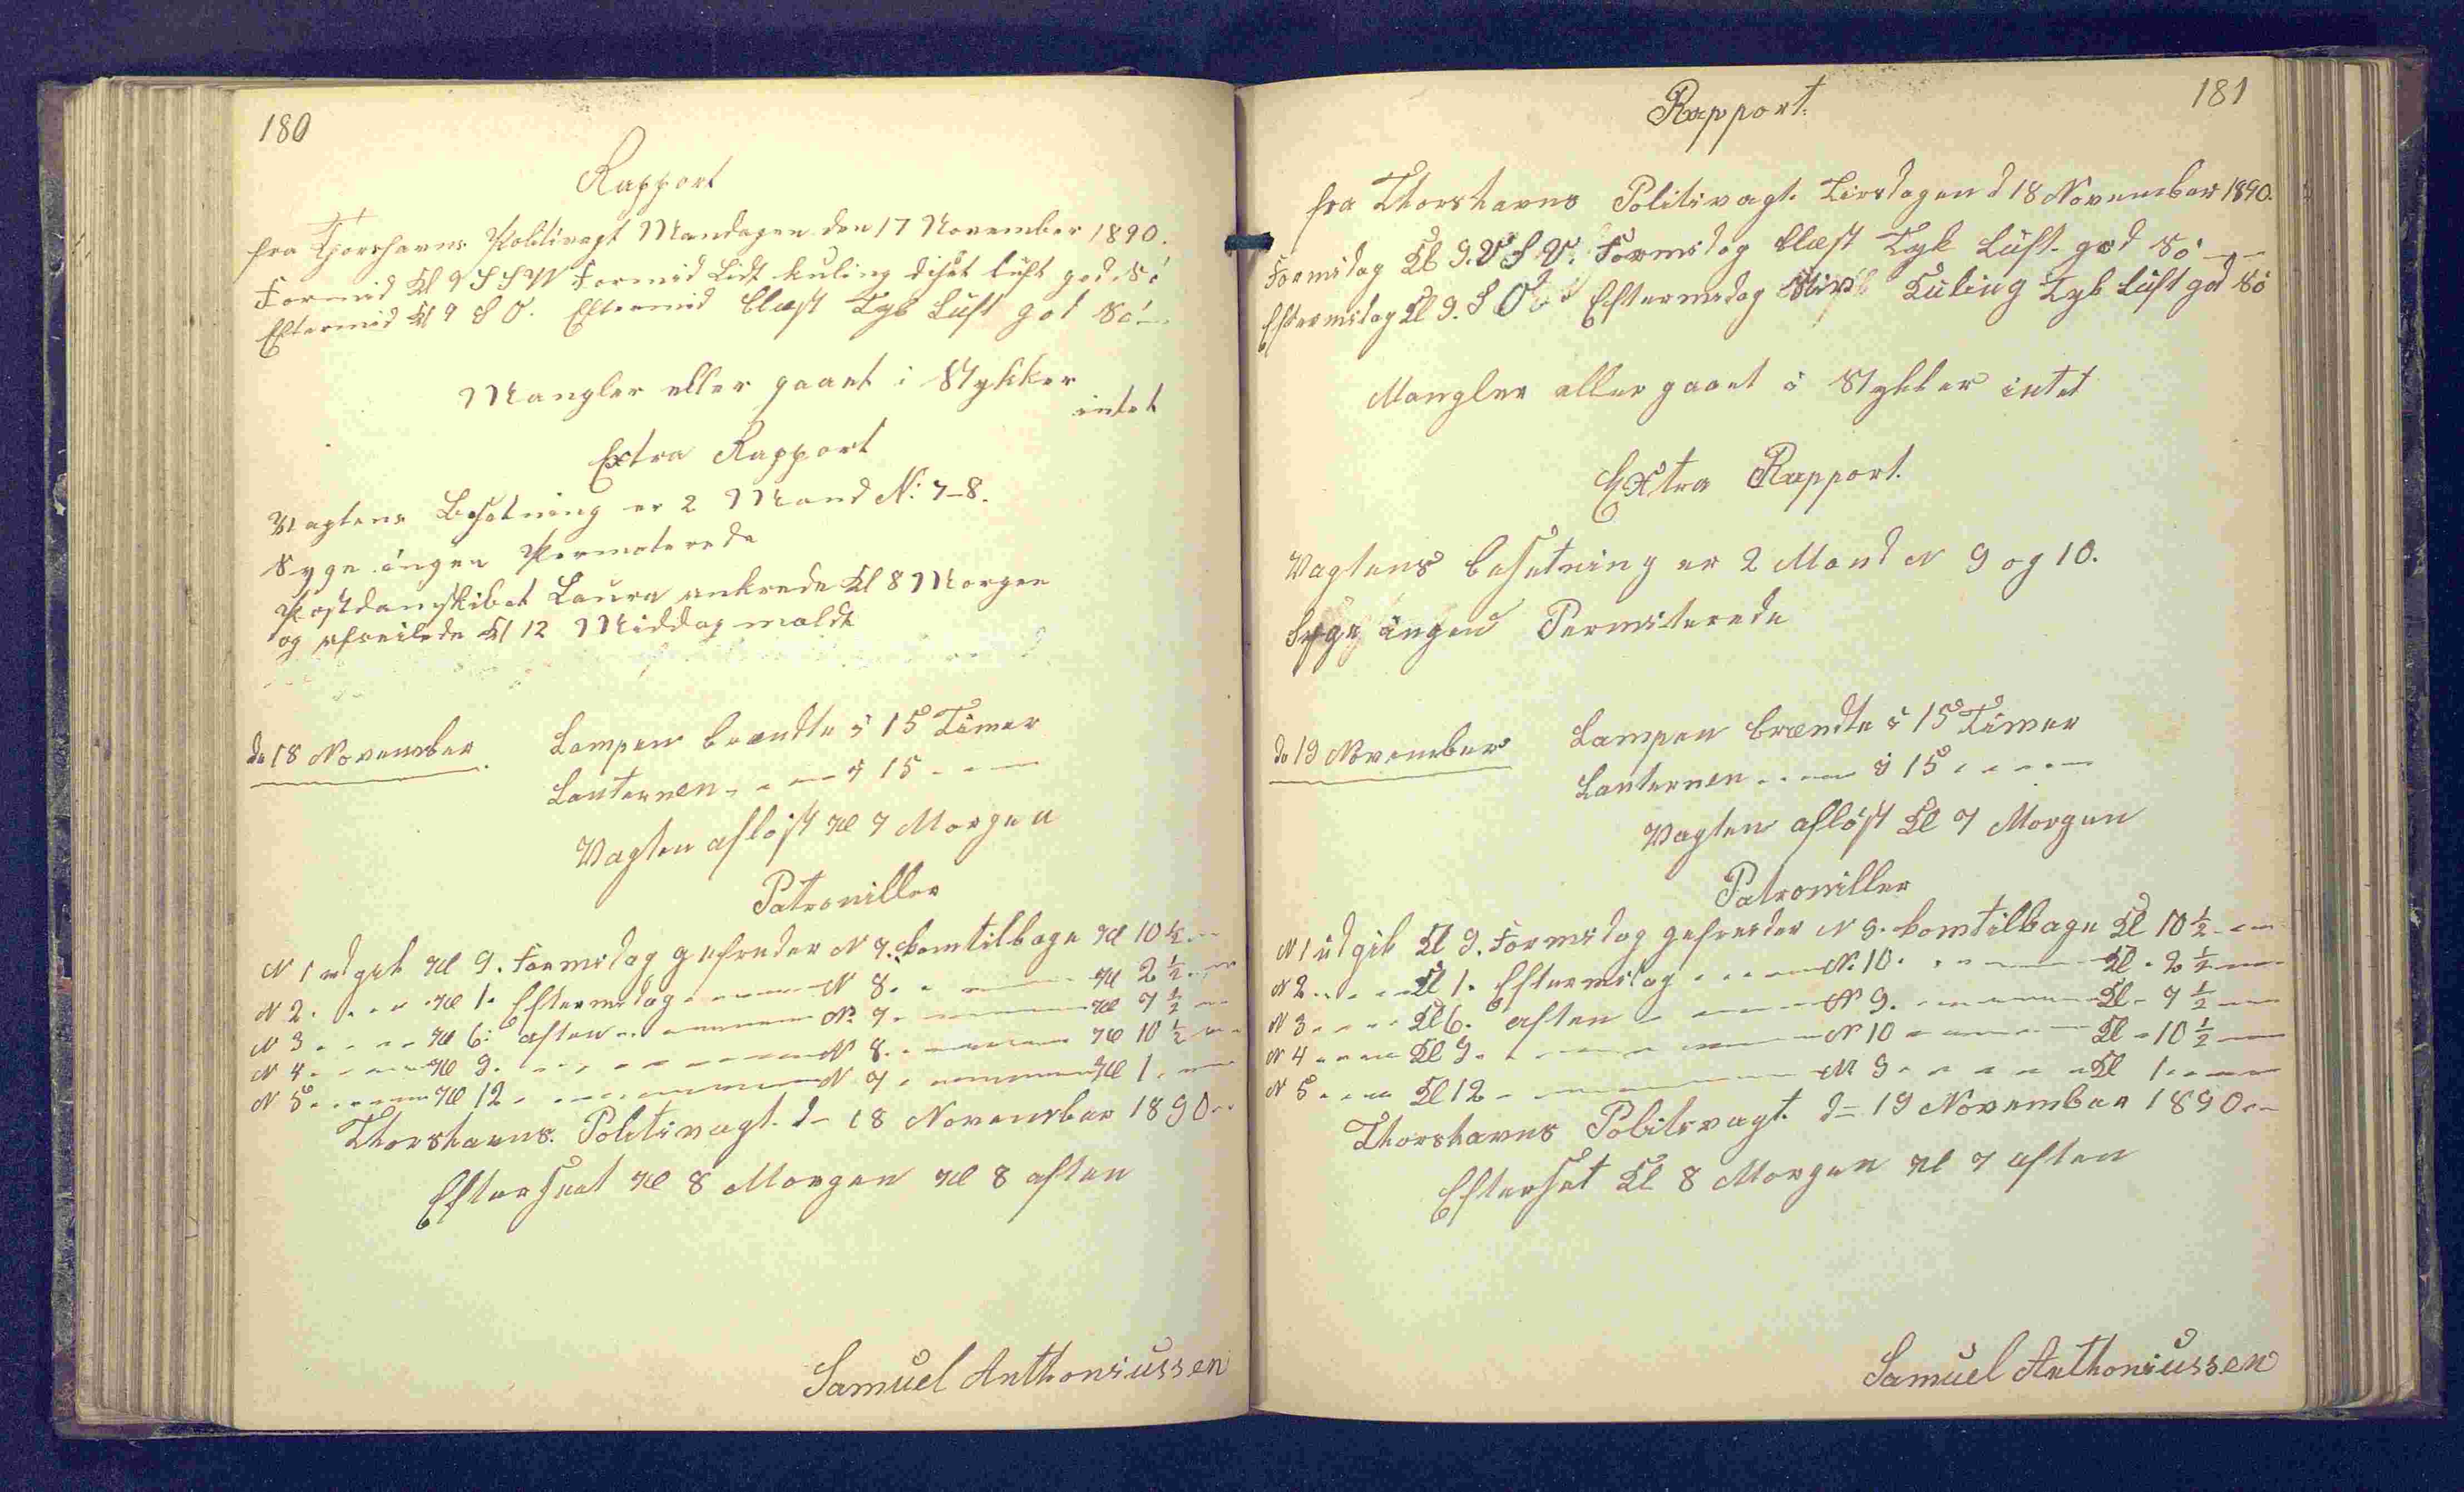 180
Rapport
fra Tjorshavns Politivagt Mandagen den 17 November 1890.
Formid Kl 9 S S W Formid Lidt kuling diset luft god Sö
Eftermid Kl 9 S O. Eftermid blæst Tyk Luft god Sö
Mangler eller gaaet i Stykker
intet
Extra Rapport
Vagtens Besetning er 2 Mand N: 7-8.
Syge ingen Permeterede
Postdamskibet Laura ankrede Kl 8 Morgen
og afseilede Kl 12 Middag
de 18 November
Lampen brændte i 15 Timer
Lanternen - - - i 15 - - -
Vagten aflöst Kl 7 Morgen
Patroniller
N 1 udgik Kl 9. Formidag gefreider N 7. kom tilbage Kl 10 ½ - -
N 2 - - - - Kl 1. Eftermidag - - - - N 8. - - - - Kl 2 ½ - -
N 3 - - - - Kl 6. aften - - - - N 7 - - - - Kl 7 ½ - -
N 4 - - - - Kl 9. - - - - N 8. - - - - Kl 10 ½ - -
N 5 - - - - Kl 12 - - - - N 7 - - - - Kl 1. - -
Thorshavns. Politivagt. d- 18 November 1890 - -
Efterseet Kl 8 Morgen Kl 8 aften
Samuel Anthoniussen
181
Rapport.
fra Thorshavns Politivagt. Tirsdagen d 18 November 1890.
Formidag Kl 9. V S V. Formidag blæst Tyk Luft god Sö - -
Eftermidag Kl 9. S O Eftermidag Stiv Kuling Tyk luft god Sö
Mangler eller gaaet i Stykker intet
Extra Rapport.
Vagtens besetning er 2 Mand N 9 og 10.
Syge ingen Permiterede
de 19 November
Lampen brændte i 15 Timer
Lanternen - - - i 15 - - - -
Vagten aflöst Kl 7 Morgen
Patroniller
N 1 udgik Kl 9. Formidag gefreider N 9. kom tilbage Kl 10 ½ - -
N 2 - - - - Kl 1. Eftermidag - - - - N. 10. - - - - Kl - 2 ½ - -
N 3 - - - - Kl 6. aften - - - - N 9. - - - - Kl - 7 ½ - -
N 4 - - - - Kl 9. - - - - N 10 - - - - Kl - 10 ½ - -
N 5 - - - - Kl 12 - - - - N 9 - - - - Kl 1 - - -
Thorshavns Politivagt. d= 19 November 1890 - -
Efterset Kl 8 Morgen Kl 7 aften
Samuel Anthoniussen